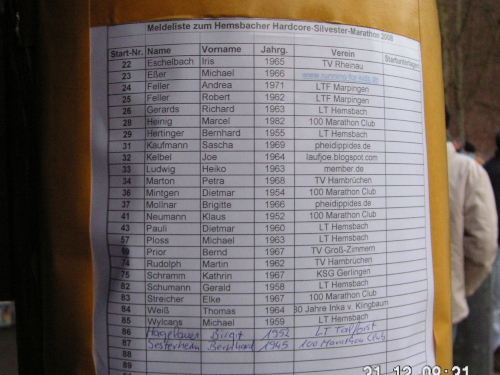 Meldeliste zum Hemsbacher Hardcore-Silvester-Marathon 2008
Start-Nr. Name Vorname Jahrg. Verein Startunterlagen
22 Eschelbach Iris 1965 TV Rheinau
23 Eßer Michael 1966 www.running-for-kids.de
24 Feller Andrea 1971 LTF Marpingen
25 Feller Robert 1962 LTF Marpingen
26 Gerards Richard 1963 LT Hemsbach
28 Heinig Marcel 1982 100 Marathon Club
29 Hertinger Bernhard 1955 LT Hemsbach
31 Kaufmann Sascha 1969 pheidippides.de
32 Kelbel Joe 1964 laufjoe.blogspot.com
33 Ludwig Heiko 1963 member.de
34 Marton Petra 1968 TV Hambrüchen
36 Mintgen Dietmar 1954 100 Marathon Club
37 Molinar Brigitte 1966 pheidippides.de
41 Neumann Klaus 1952 100 Marathon Club
43 Pauli Dietmar 1960 LT Hemsbach
57 Ploss Michael 1963 LT Hemsbach
Prior Bernd 1967 TV Groß-Zimmern
74 Rudolph Martin 1962 TV Hambrüchen
75 Schramm Kathrin 1967 KSG Gerlingen
82 Schumann Gerald 1958 LT Hemsbach
83 Streicher Elke 1967 100 Marathon Club
84 Weiß Thomas 1964 80 Jahre Inka v. Klingbaum
85 Wylcans Michael 1959 LT Hemsbach
86 Birgit 1952 LT
87 Bernhard 1945 100 Marathon Club
88